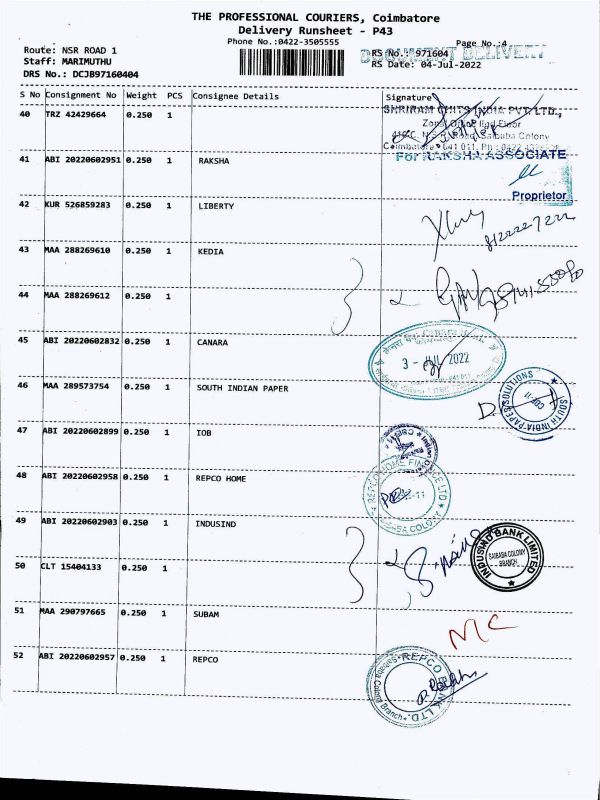 THE PROFESSIONAL COURIERS, Coimbatore
Delivery Runsheet - P43
Phone No.:0422-3505555
Page No.:4
Route: NSR ROAD 1
RS No.: 971604
DOCUMENT DELIVERY
Staff: MARIMUTHU
RS Date: 04-Jul-2022
DRS No.: DCJB97160404
S No Consignment No Weight PCS Consignee Details Signature
40 TRZ 42429664 0.250 1
SHRIRAM CHITS INDIA PVT. LTD.,
Saibaba Colony
41 ABI 20220602951 0.250 1 RAKSHA
For RAKSHA ASSOCIATE
Proprietor
42 KUR 526859283 0.250 1 LIBERTY
43 MAA 288269610 0.250 1 KEDIA
44 MAA 288269612 0.250 1
45 ABI 20220602832 0.250 1 CANARA
2022
46 MAA 289573754 0.250 1 SOUTH INDIAN PAPER
SOUTH INDIA PAPER SOLUTIONS
47 ABI 20220602899 0.250 1 IOB
48 ABI 20220602958 0.250 1 REPCO HOME
REPCO HOME FINANCE LTD
49 ABI 20220602903 0.250 1 INDUSIND
INDUSIND BANK LIMITED
SAIBABA COLONY
BRANCH
50 CLT 15404133 0.250 1
51 MAA 290797665 0.250 1 SUBAM
MC
52 ABI 20220602957 0.250 1 REPCO
REPCO BANK LTD.
Saibaba Colony Branch